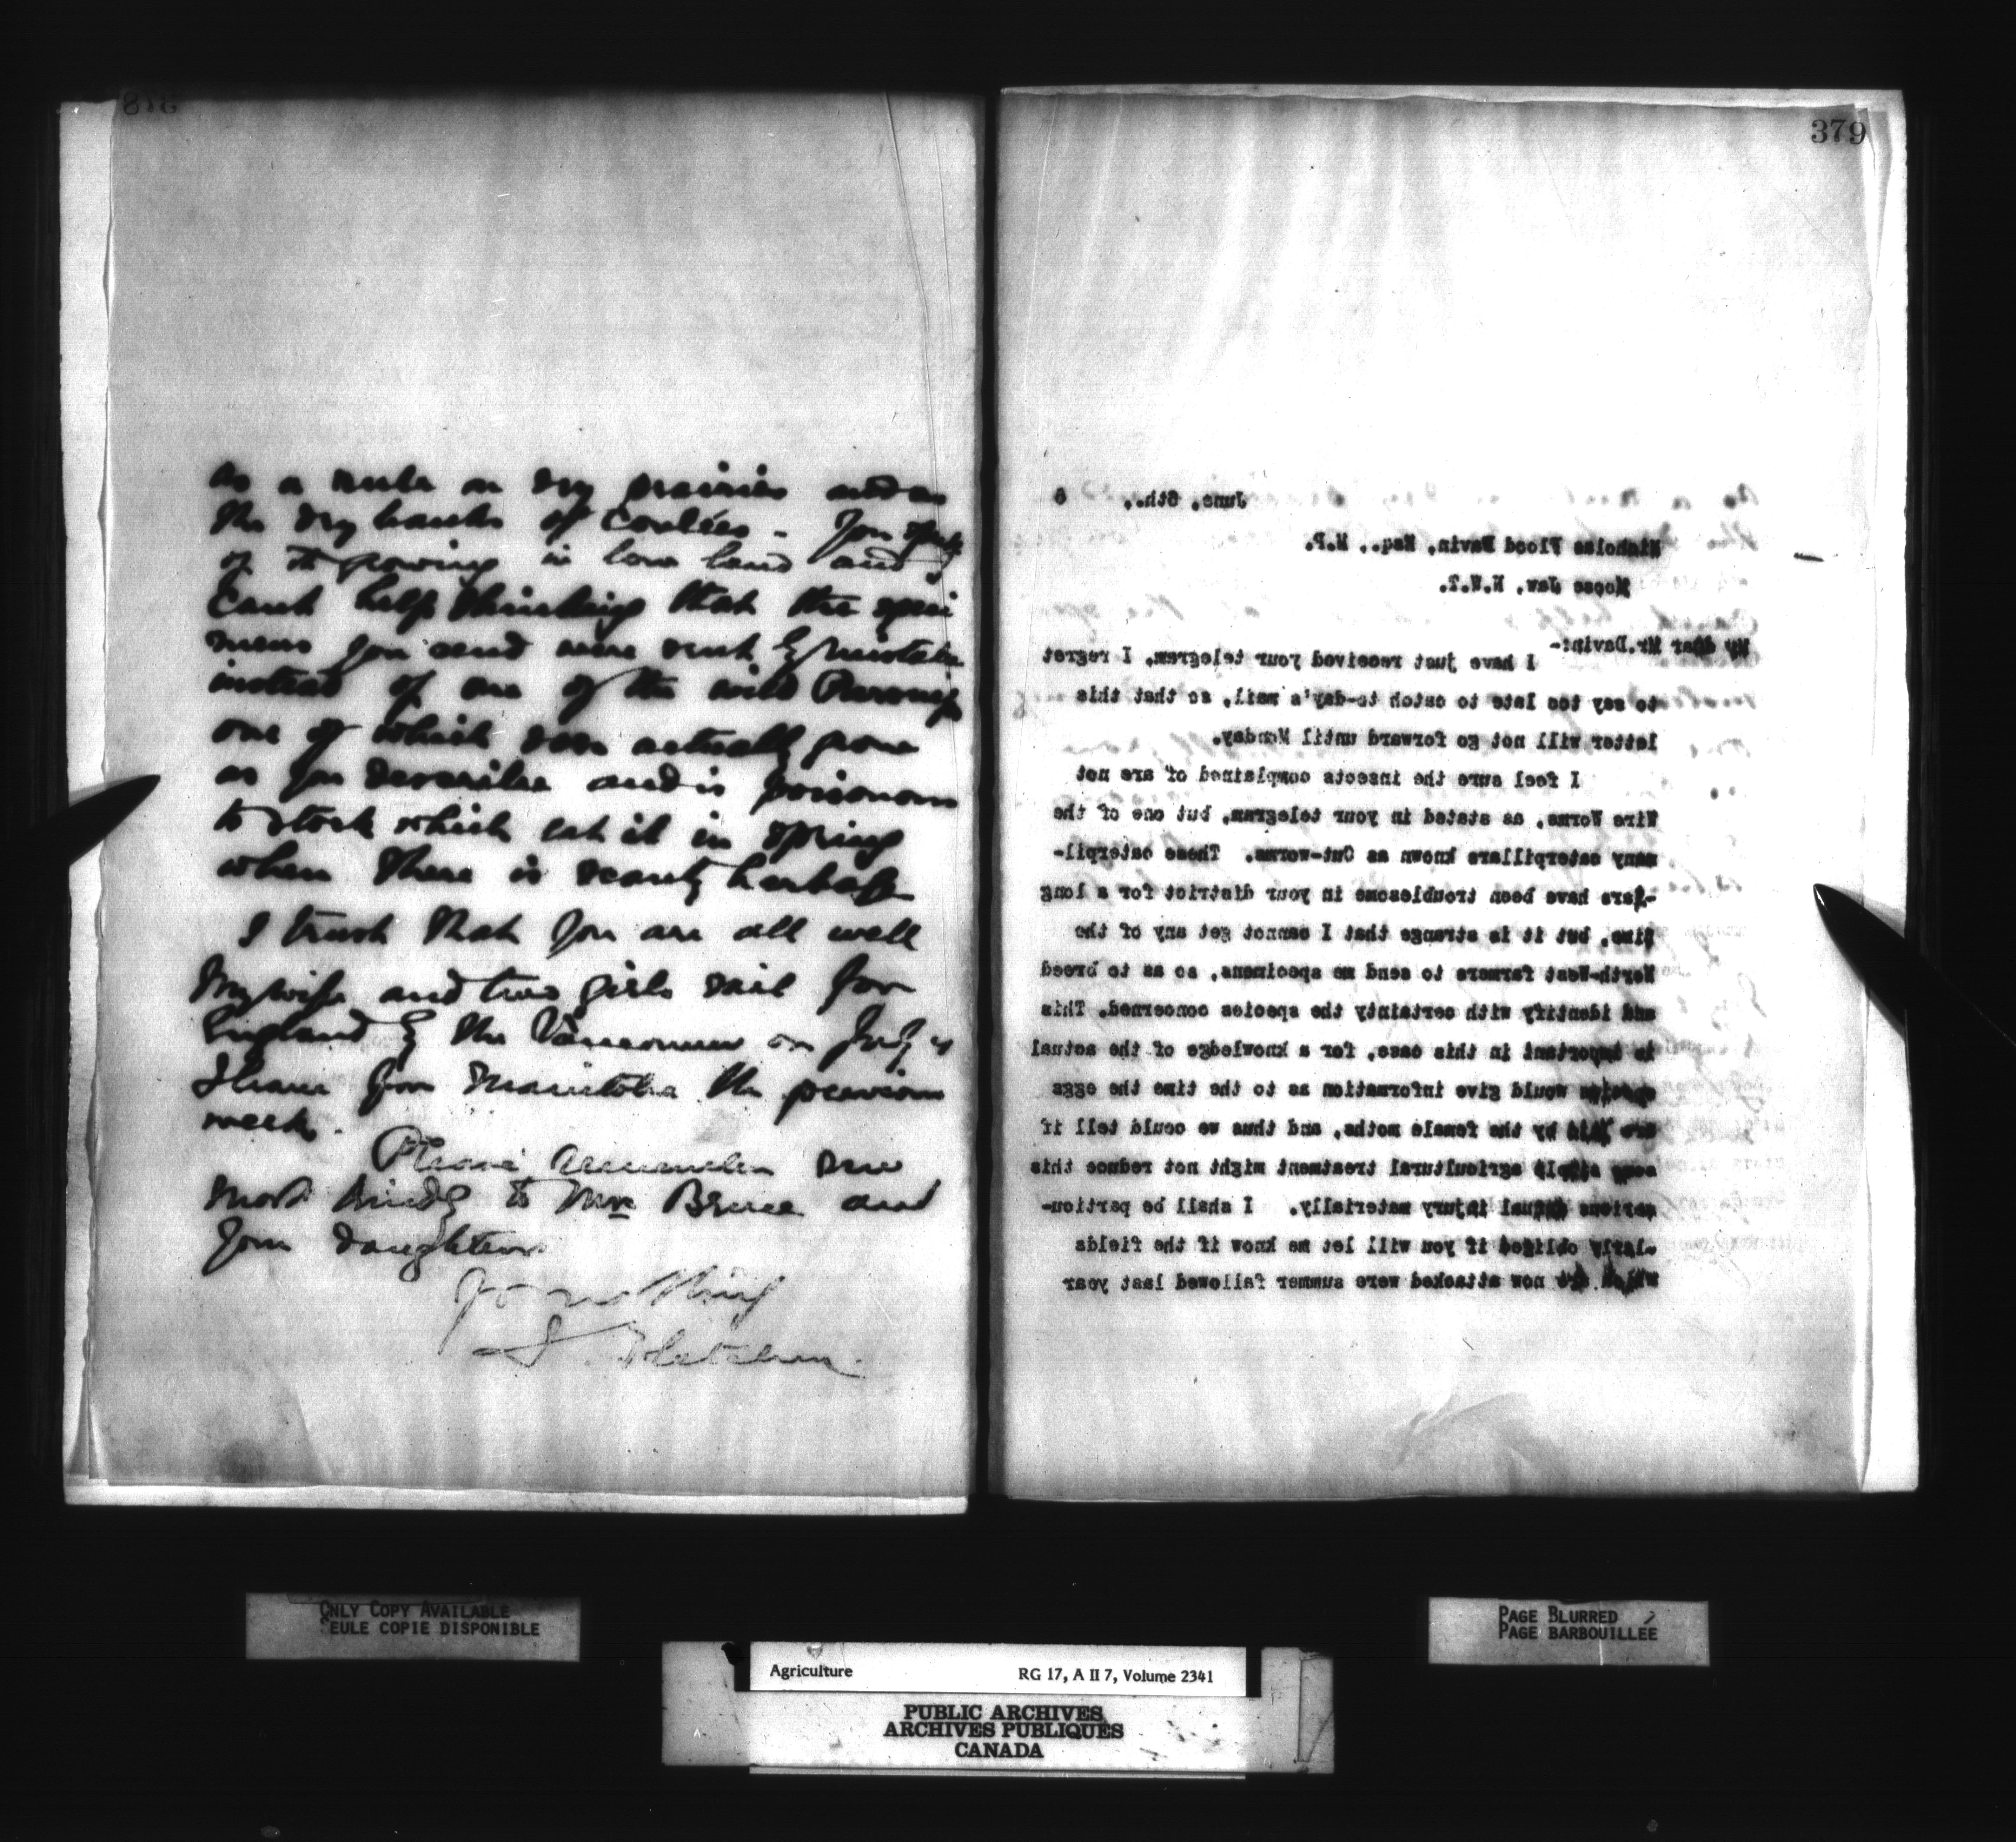 378
as a rule on dry prairies and on
the dry banks of Coulées - You speak
of it growing in low land and I
cant help thinking that the speci
mens you send were sent by mistake
instead of one of the wild Parsneps
one of which does actually grow
as you describe and is poisonous
to stock which eat it in spring
when there is scanty herbage
I trust that you are all well
My wife and two girls sail for
England by the Vancouver on July 4
I leave for Manitoba the previous
week.
Please remember me
most kindly to Mrs Bruce and
your daughters
J. Fletcher
379
June, 6th., 6
Nicholas Flood Davin, Esq., M.P.
Moose Jaw, N.W.T.
My dear Mr. Davin:-
I have just received your telegram, I regret
to say too late to catch to-day's mail, so that this
letter will not go forward until Monday.
I feel sure the insects complained of are not
Wire Worms, as stated in your telegram, but one of the
many caterpillars known as Cut-worms. These caterpil-
-lars have been troublesome in your district for a long
time, but it is strange that I cannot get any of the
North-West farmers to send me specimens, so as to breed
and identify with certainty the species concerned. This
is important in this case, for a knowledge of the actual
species would give information as to the time the eggs
are laid by the female moths, and thus we could tell if
some simple agricultural treatment might not reduce this
serious annual injury materially. I shall be particu-
-larly obliged if you will let me know if the fields
which are now attacked were summer fallowed last year
ONLY COPY AVAILABLE
SEULE COPIE DISPONIBLE
PAGE BLURRED
PAGE BARBOUILLÉE
Agriculture RG 17, A II 7, Volume 2341
PUBLIC ARCHIVES
ARCHIVES PUBLIQUES
CANADA